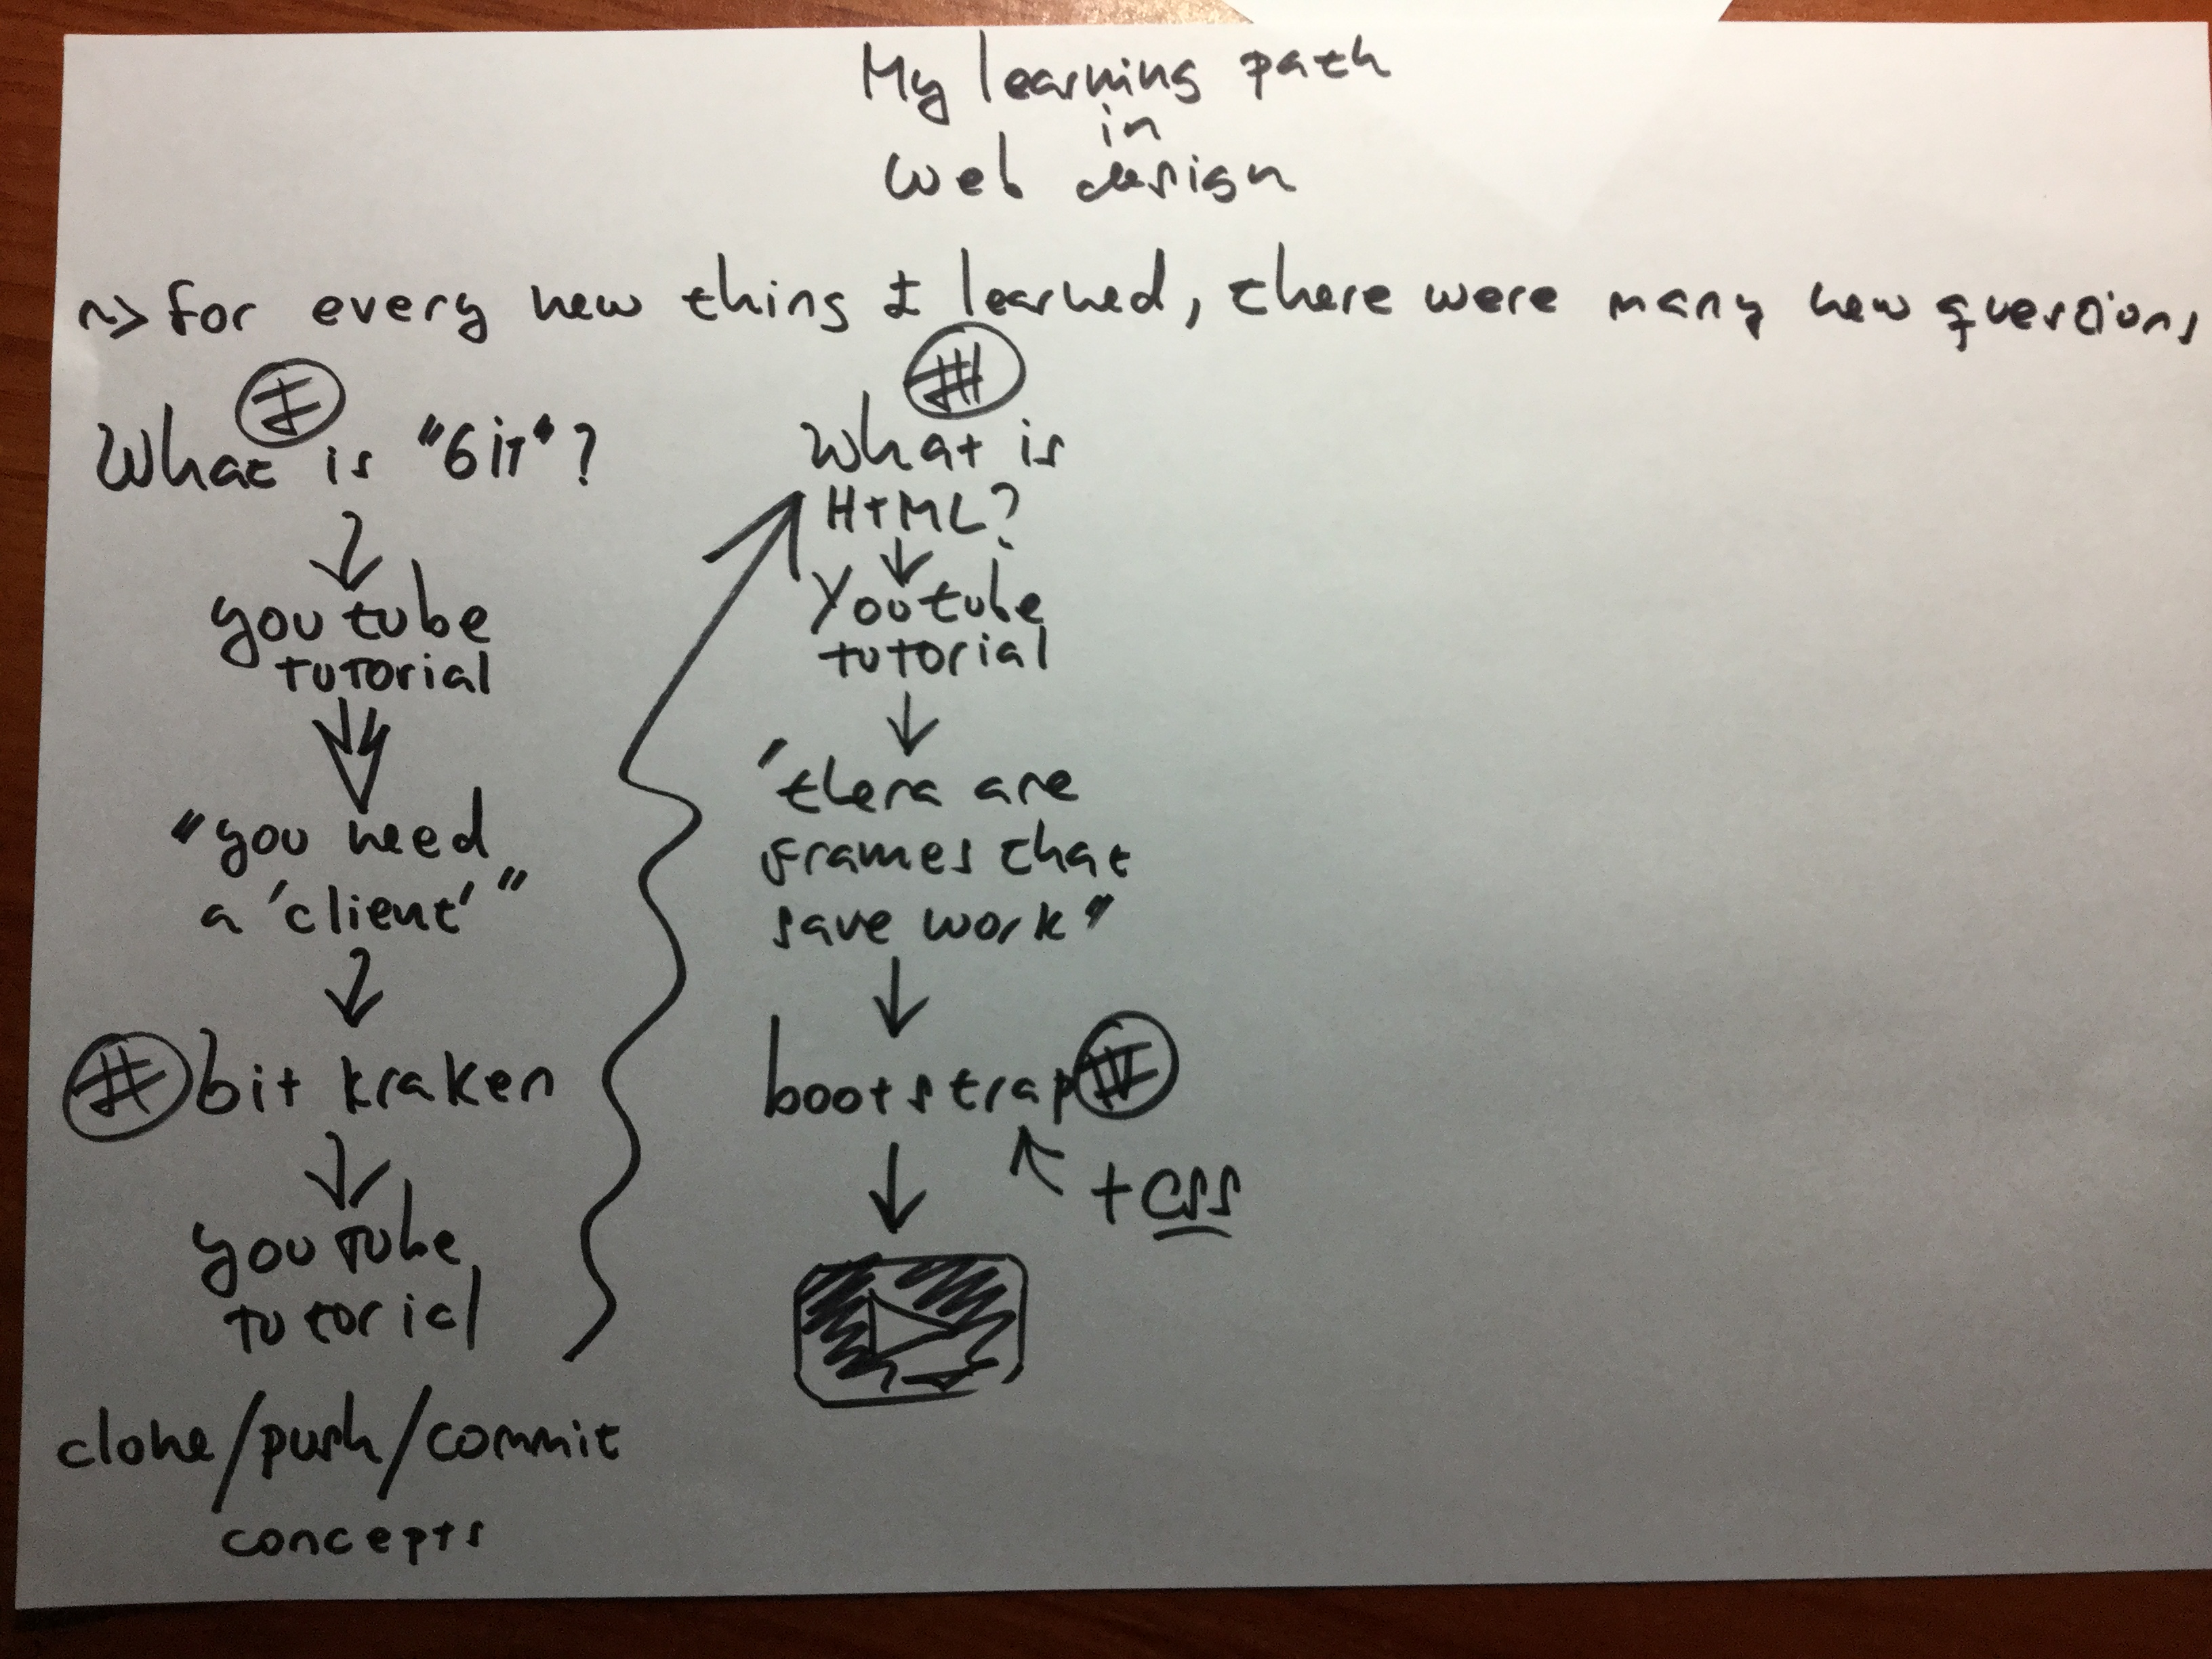 My learning path
in
web design
~> for every new thing I learned, there were many new questions
I
What is "Git"?
youtube
tutorial
"you need
a 'client'"
II
bit kraken
youtube
tutorial
clone/push/commit
concepts
III
What is
HTML?
Youtube
tutorial
"there are
frames that
save work"
bootstrap
IV
+ CSS